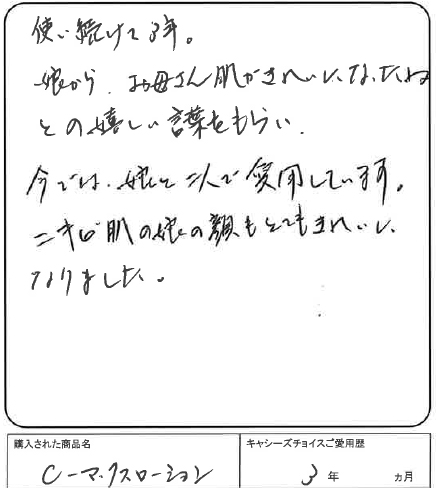 使い続けて3年。
娘から、お母さん肌がきれいになったね
との嬉しい言葉をもらい、
今では、娘と二人で愛用しています。
ニキビ肌の娘の顔もとてもきれいに
なりました。
購入された商品名
キャシーズチョイスご愛用歴
C-マックスローション
3年 ヵ月